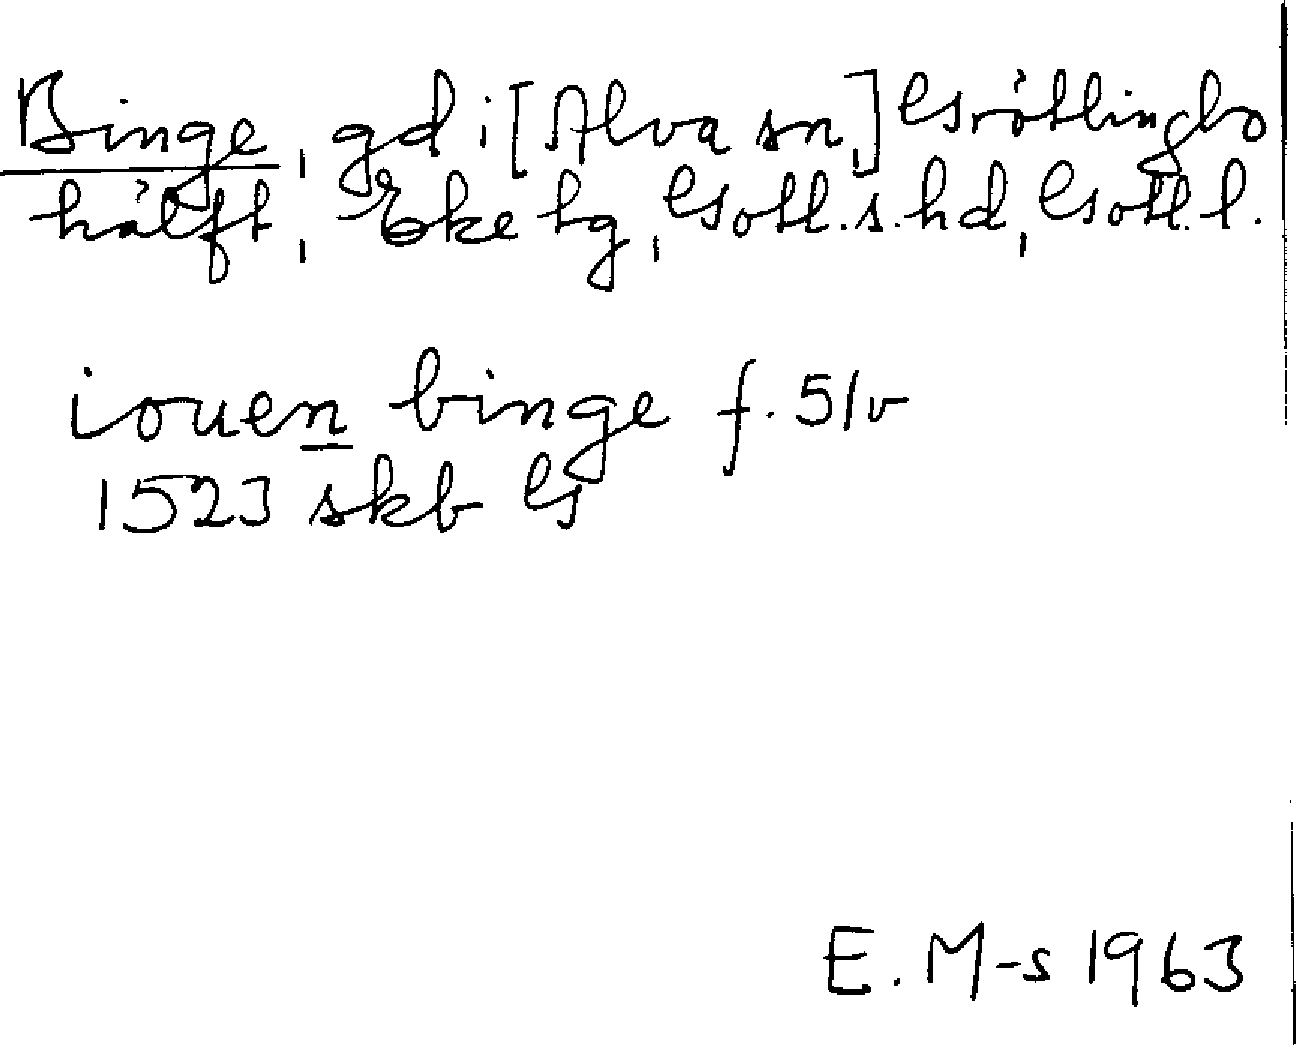 Binge, gd i [Alva sn,] Grötlingbo
hälft, Eke tg, Gotl.s.hd, Gotl.l.
iouen binge f. 51v
1523 skb G
E. M-s 1963